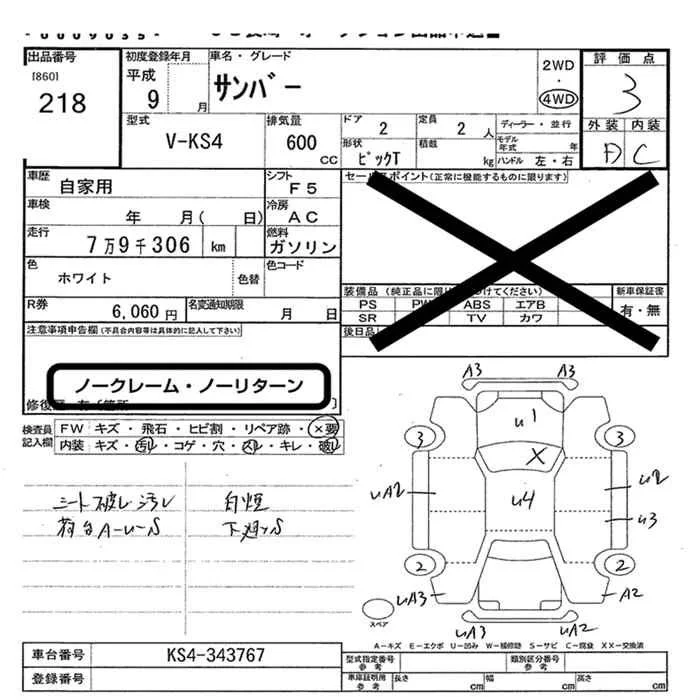 出品番号
[860]
218
初度登録年月
平成
9 月
車名・グレード
サンバー
2WD
・
4WD
評価点
3
外装 内装
D C
型式
V-KS4
排気量
600
CC
ドア
2
定員
2 人
ディーラー・並行
モデル
年式
年
形状
ピックT
積載
kg
ハンドル 左・右
車歴
自家用
シフト
F5
セールスポイント(正常に機能するものに限ります)
車検
年 月( 日)
冷房
AC
走行
7万9千306 km
燃料
ガソリン
色
ホワイト
色替
色コード
R券
6,060 円
名変通知期限
月 日
装備品
PS PW ABS エアB
SR TV カワ
新車保証書
有・無
後日品
注意事項申告欄(不具合内容等は具体的に記入して下さい)
ノークレーム・ノーリターン
検査員
記入欄
FW キズ・飛石・ヒビ割・リペア跡・×要
内装 キズ・汚れ・コゲ・穴・スレ・キレ・破れ
シート破レ汚レ
荷台A-U-S
白煙
下廻りS
A3 A3
U1
3 3
X
UA2
U4
U2
U3
2 2
UA3 A2
UA3 UA2
スペア
A-キズ E-エクボ U-凹み W-補修跡 S-サビ C-腐食 XX-交換済
車台番号
KS4-343767
登録番号
型式指定番号
参考
類別区分番号
参考
車庫証明用
参考
長さ cm
幅 cm
高さ cm